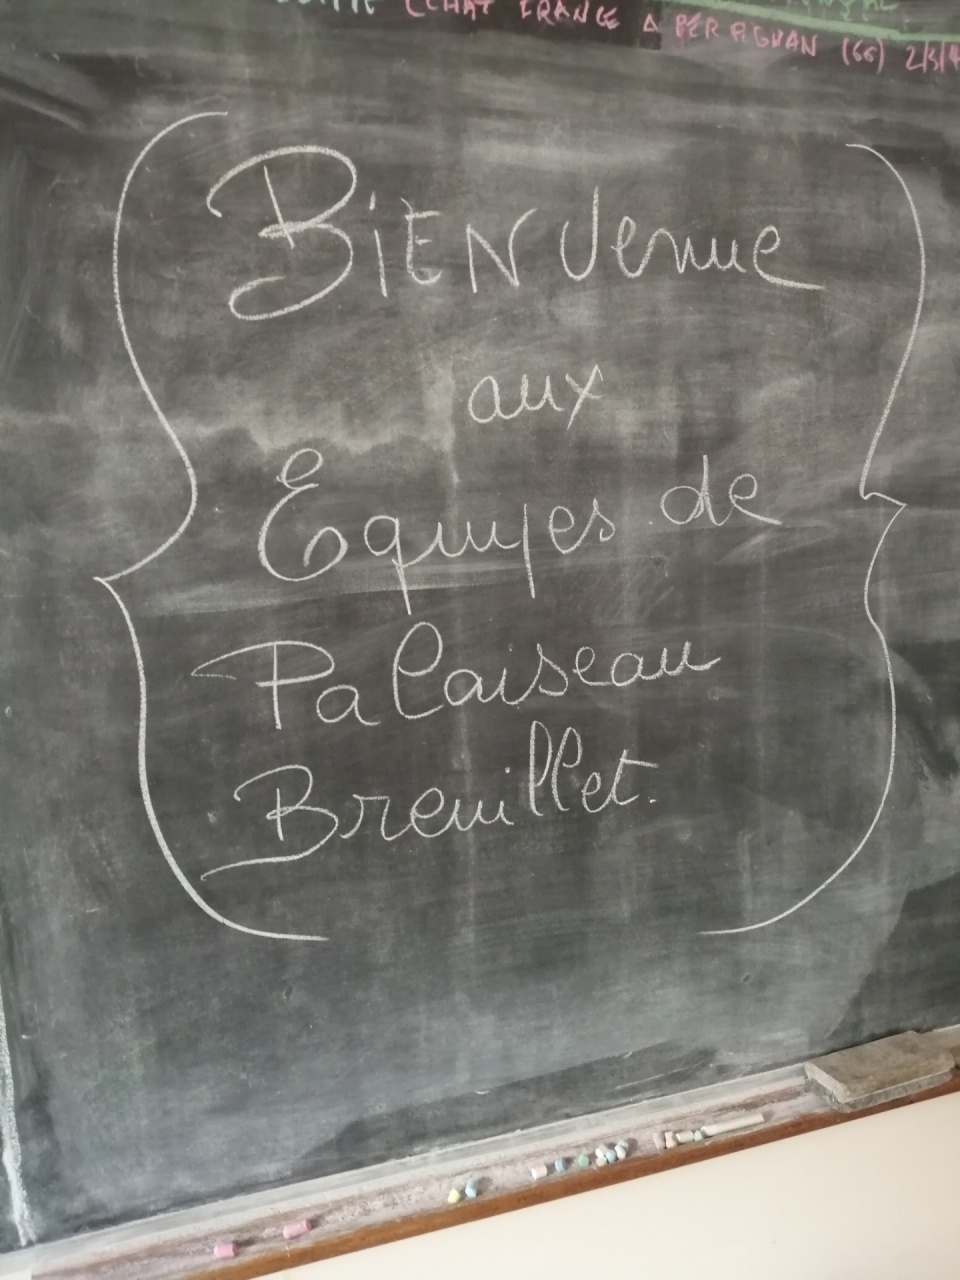 CCHAT FRANCE A PERPIGNAN (66) 2/3/4
BiENvenue
aux
Equipes de
Palaiseau
Breuillet.